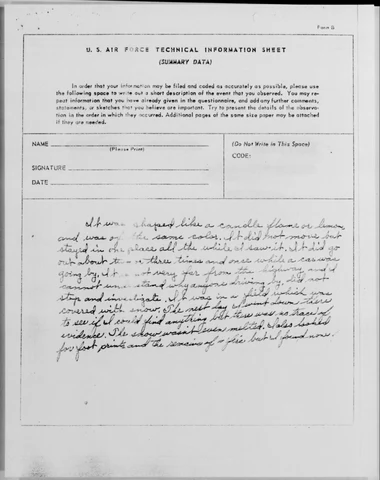 Form B
U. S. AIR FORCE TECHNICAL INFORMATION SHEET
(SUMMARY DATA)
In order that your information may be filed and coded as accurately as possible, please use
the following space to write out a short description of the event that you observed. You may re-
peat information that you have already given in the questionnaire, and add any further comments,
statements, or sketches that you believe are important. Try to present the details of the observa-
tion in the order in which they occurred. Additional pages of the same size paper may be attached
if they are needed.
NAME
(Please Print)
SIGNATURE
DATE
(Do Not Write in This Space)
CODE:
It was shaped like a candle flame or lemon
and was of the same color. It did not move but
stayed in one place all the while I saw it. It did go
out about two or three times and once while a car was
going by. It was not very far from the highway and I
cannot understand why anyone driving by, did not
stop and investigate. It was in a field which was
covered with snow. The next day I went down there
to see if I could find anything but there was no trace of
evidence. The snow wasn't even melted. I also looked
for foot prints and the remains of a fire but I found none.